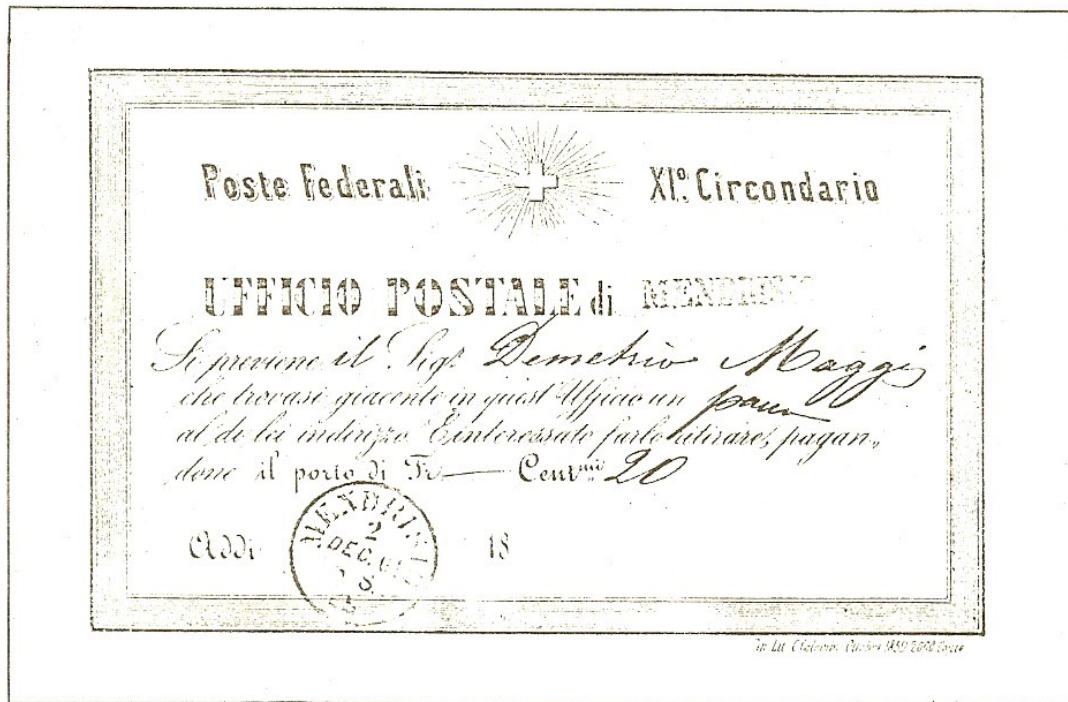 Poste Federali XIº Circondario
UFFICIO POSTALE di MENDRISIO
Si previene il Sigr Demetrio Maggi
che trovasi giacente in quest'Ufficio un
al di lei indirizzo. È interessato farlo ritirare, pagan„
done il porto di Fr — Centmi 20
Addì 18
MENDRISIO
2
DEC. 61